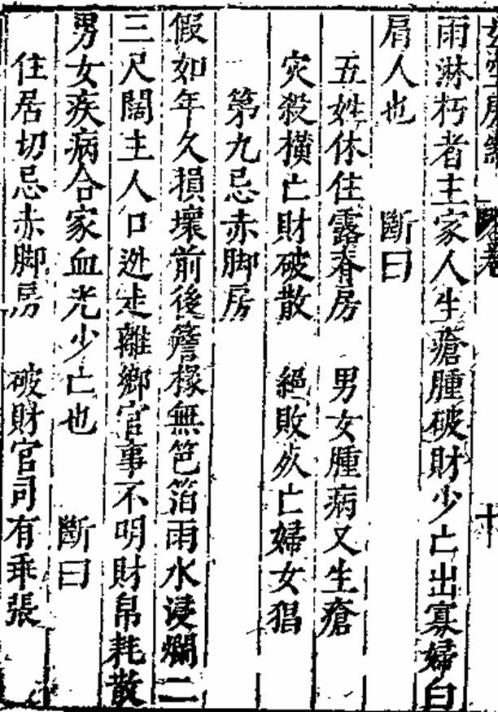 雨淋朽者主家人生瘡腫破財少亡出寡婦白
屑人也　斷曰
五姓休住露脊房　男女腫病又生瘡
灾殺橫亡財破散　絕敗夊亡婦女猖
第九忌赤脚房
假如年久損壞前後簷椽無笆箔雨水浸爛二
三尺闊主人口迯走離鄉官事不明財帛耗散
男女疾病合家血光少亡也　斷曰
住居切忌赤脚房　破財官司有乖張